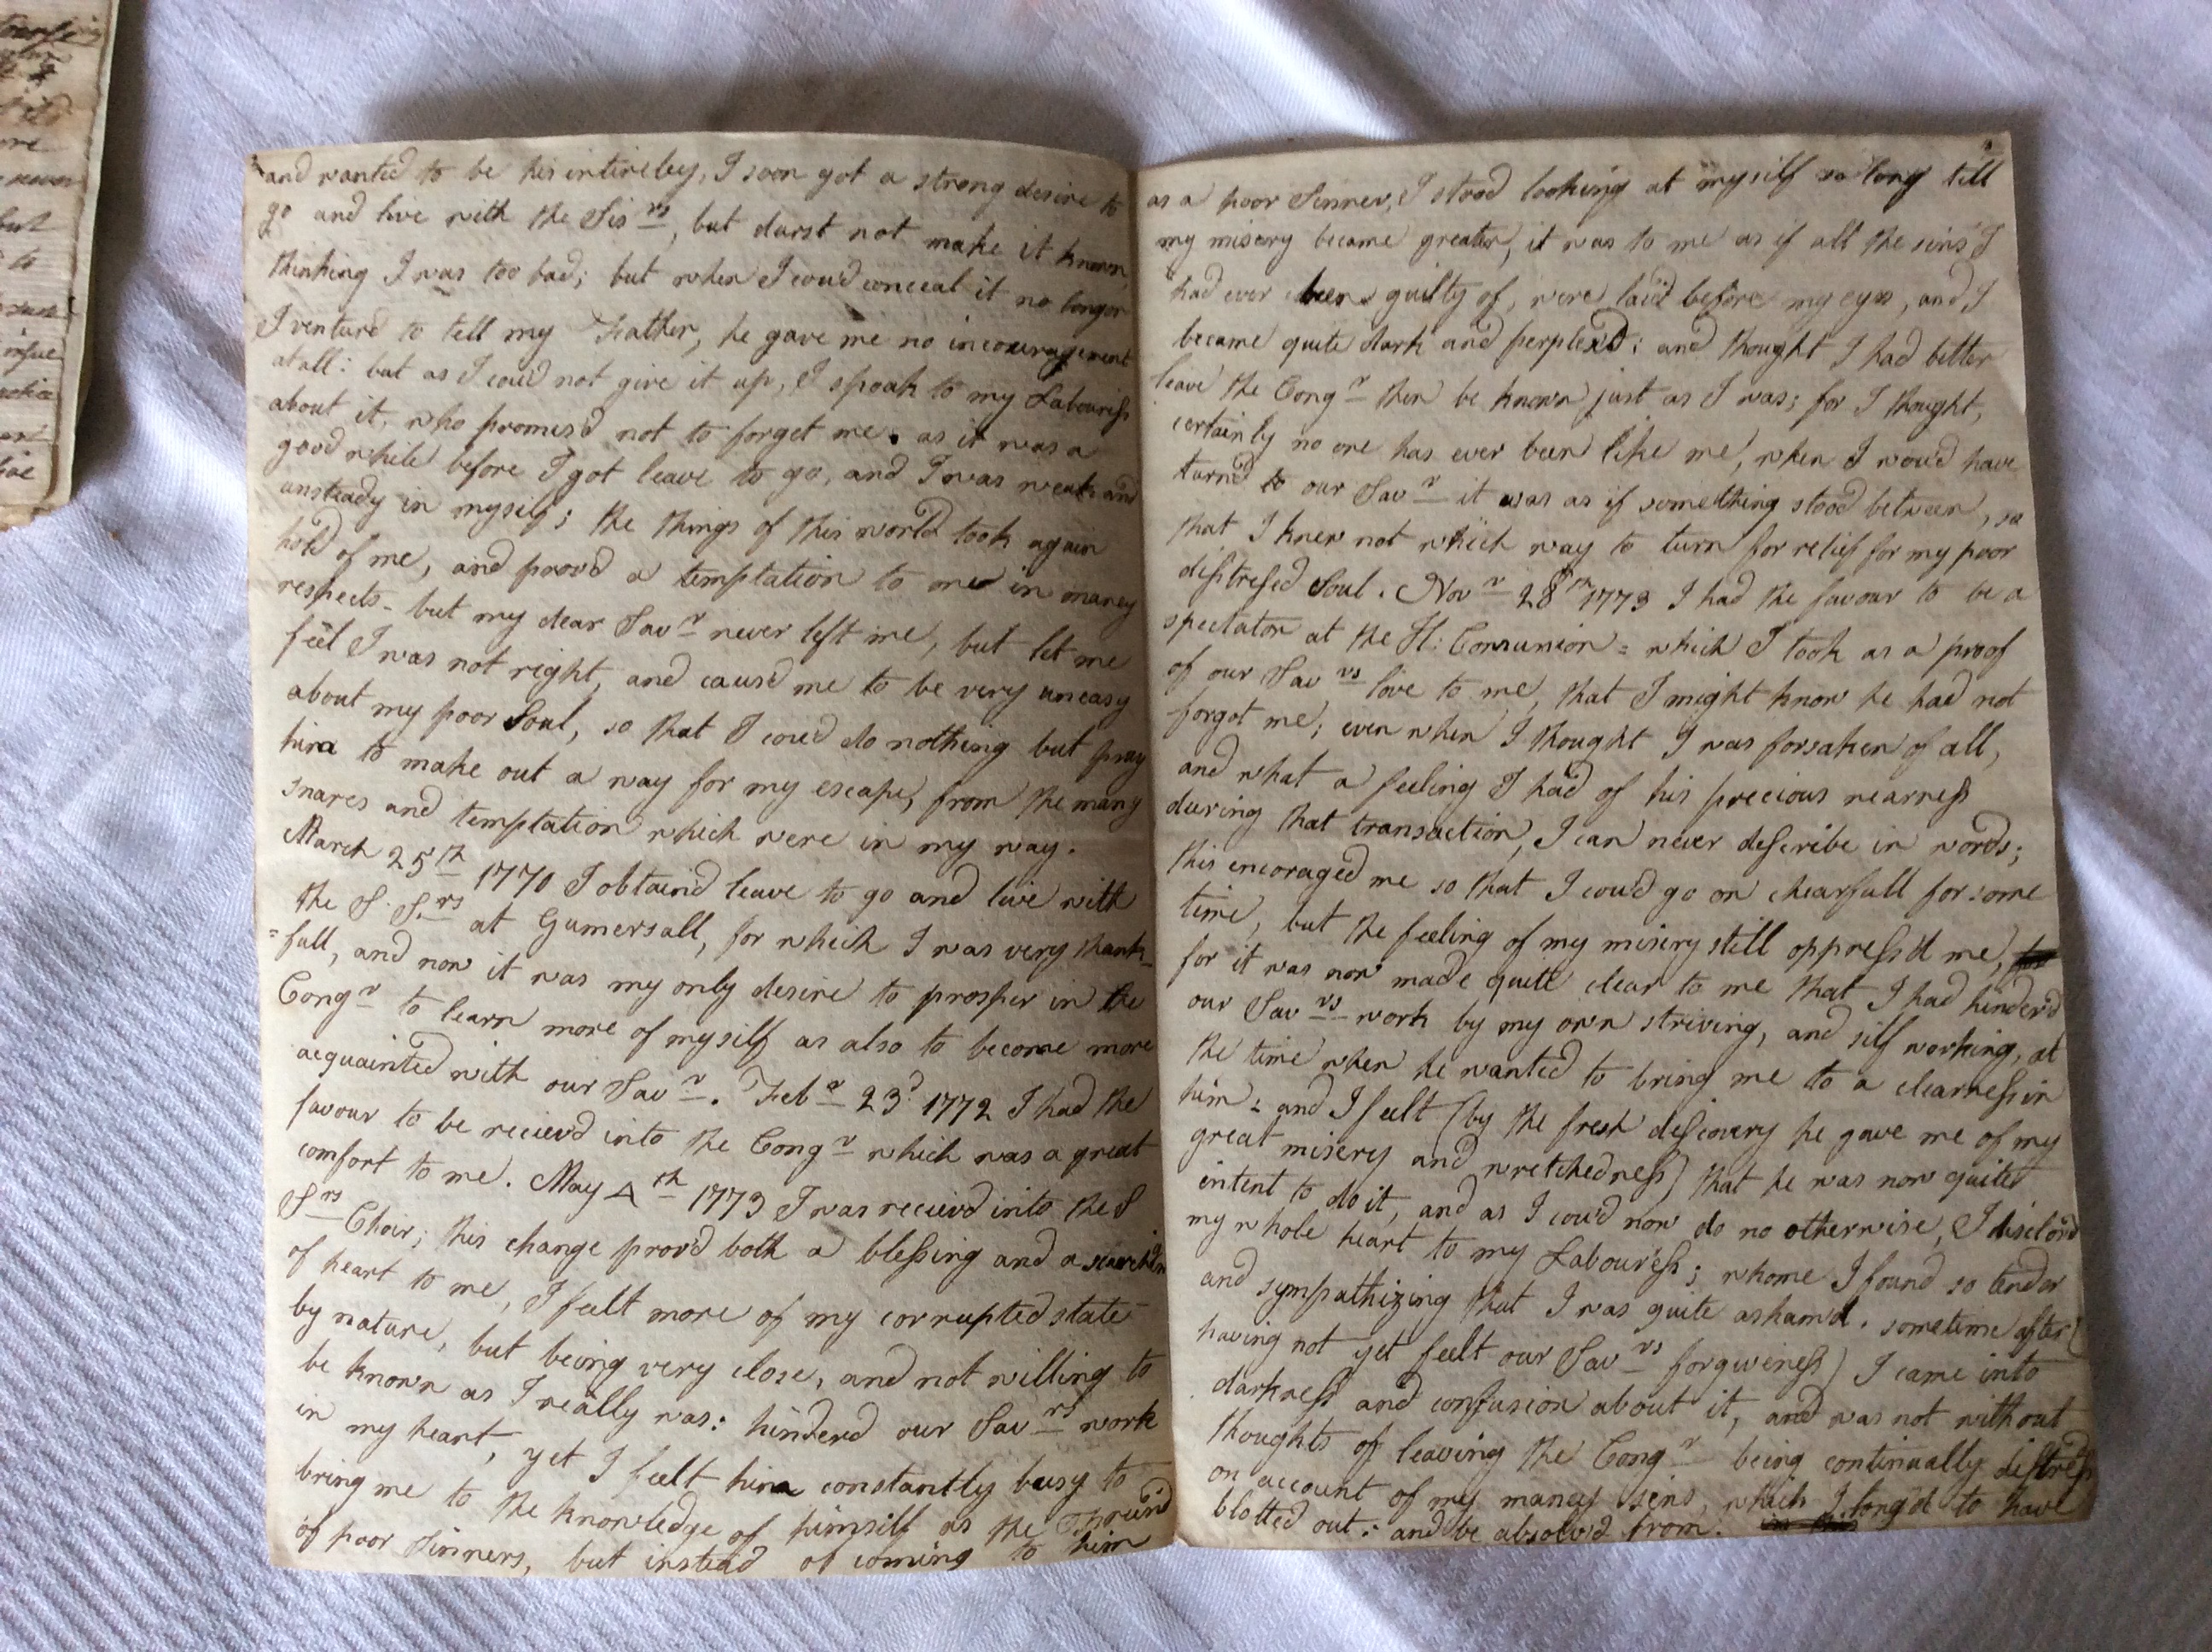 and wanted to be his intireley, I soon got a strong desire to
go and live with the Sisrs, but durst not make it known,
thinking I was too bad; but when I cou'd conceal it no longer
I ventur'd to tell my Father, he gave me no incouragement
at all: but as I cou'd not give it up, I spoak to my Labouress
about it, who promis'd not to forget me. as it was a
good while before I got leave to go, and I was weak and
unsteady in myself; the things of this world took again
hold of me, and prov'd a temptation to me in maney
respects - but my dear Savr never left me, but let me
feel I was not right, and caus'd me to be very uneasy
about my poor Soul, so that I cou'd do nothing but pray
him to make out a way for my escape, from the many
snares and temptation which were in my way.
March 25th 1770 I obtain'd leave to go and live with
the S. Srs at Gumersall, for which I was very thank-
=full, and now it was my only desire to prosper in the
Congn to learn more of myself as also to become more
acquainted with our Savr. Feba 23d 1772 I had the
favour to be reciev'd into the Congn which was a great
comfort to me. May 4th 1773 I was reciev'd into the S
Srs Choir; this change prov'd both a blessing and a
of heart to me, I feelt more of my corrupted state
by nature, but being very close, and not willing to
be known as I really was: hinderd our Savrs work
in my heart, yet I feelt him constantly buesy to
bring me to the knowledge of himself as the Freind
of poor Sinners, but instead of coming to him
as a poor Sinner, I stood looking at myself so long till
my misery became greater, it was to me as if all the sins I
had ever been guilty of, were laid before my eyes, and I
became quite dark and perplex'd: and thought I had better
leave the Congn then be known just as I was; for I thought,
certainly no one has ever been like me, when I wou'd have
turn'd to our Savr it was as if something stood between, so
that I knew not which way to turn for relief for my poor
distressed Soul. Novr 28th 1773 I had the favour to be a
spectator at the H: Communion = which I took as a proof
of our Savrs love to me, that I might know he had not
forgot me; even when I thought I was forsaken of all,
and what a feeling I had of his precious nearness
during that transaction, I can never describe in words;
this encoraged me so that I cou'd go on chearfull for some
time, but the feeling of my misery still oppress'd me,
for it was now made quite clear to me that I had hinder'd
our Savrs work by my own striving, and self working, at
the time when he wanted to bring me to a clearness in
him: and I feelt (by the fresh discovery he gave me of my
great misery and wretchedness) that he was now quite
intent to do it, and as I cou'd now do no otherwise, I disclos'd
my whole heart to my Labouress; whome I found so tender
and sympathizing that I was quite asham'd. sometime after (
having not yet feelt our Savrs forgiveness) I came into
darkness and confusion about it, and was not without
thoughts of leaving the Congn being continually distress
on account of my maney sins, which I long'd to have
blotted out: and be absolv'd from.